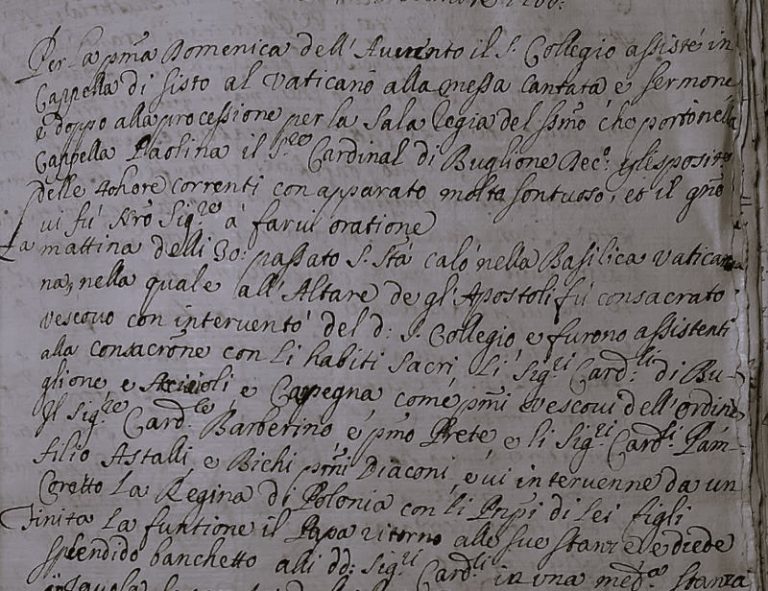 Per la pma Domenica dell'Avvento il S. Collegio assisté in
Cappella di Sisto al Vaticano alla messa cantata e sermone
e doppo alla processione per la Sala Regia del ssmo che portò nella
Cappella Paolina il S.re Cardinal di Buglione Dec.o
delle 40hore correnti con apparato molto sontuoso, et il gno
vi fu Nro Sig.re à farvi oratione
La mattina delli 30: passato S. Sta calò nella Basilica Vatica
na, nella quale all'Altare de gl'Apostoli fù consacrato
Vescovo con intervento del d: S. Collegio e furono assistenti
alla consacrõne con li habiti sacri li Sig.ri Card.li di Bu-
glione e Acciaioli e Carpegna come pmi Vescovi dell'ordine
Il Sig.re Card.le Barberino è pmo Prete e li Sig.ri Card.li Pam-
filio Astalli e Bichi pmi Diaconi, e vi intervenne da un
Coretto La Regina di Polonia con li Pnpi di lei figli
Finita la funtione il Papa ritornò alle sue stanze, e diede
splendido banchetto alli dd: Sig.ri Card.li in una med.a stanza